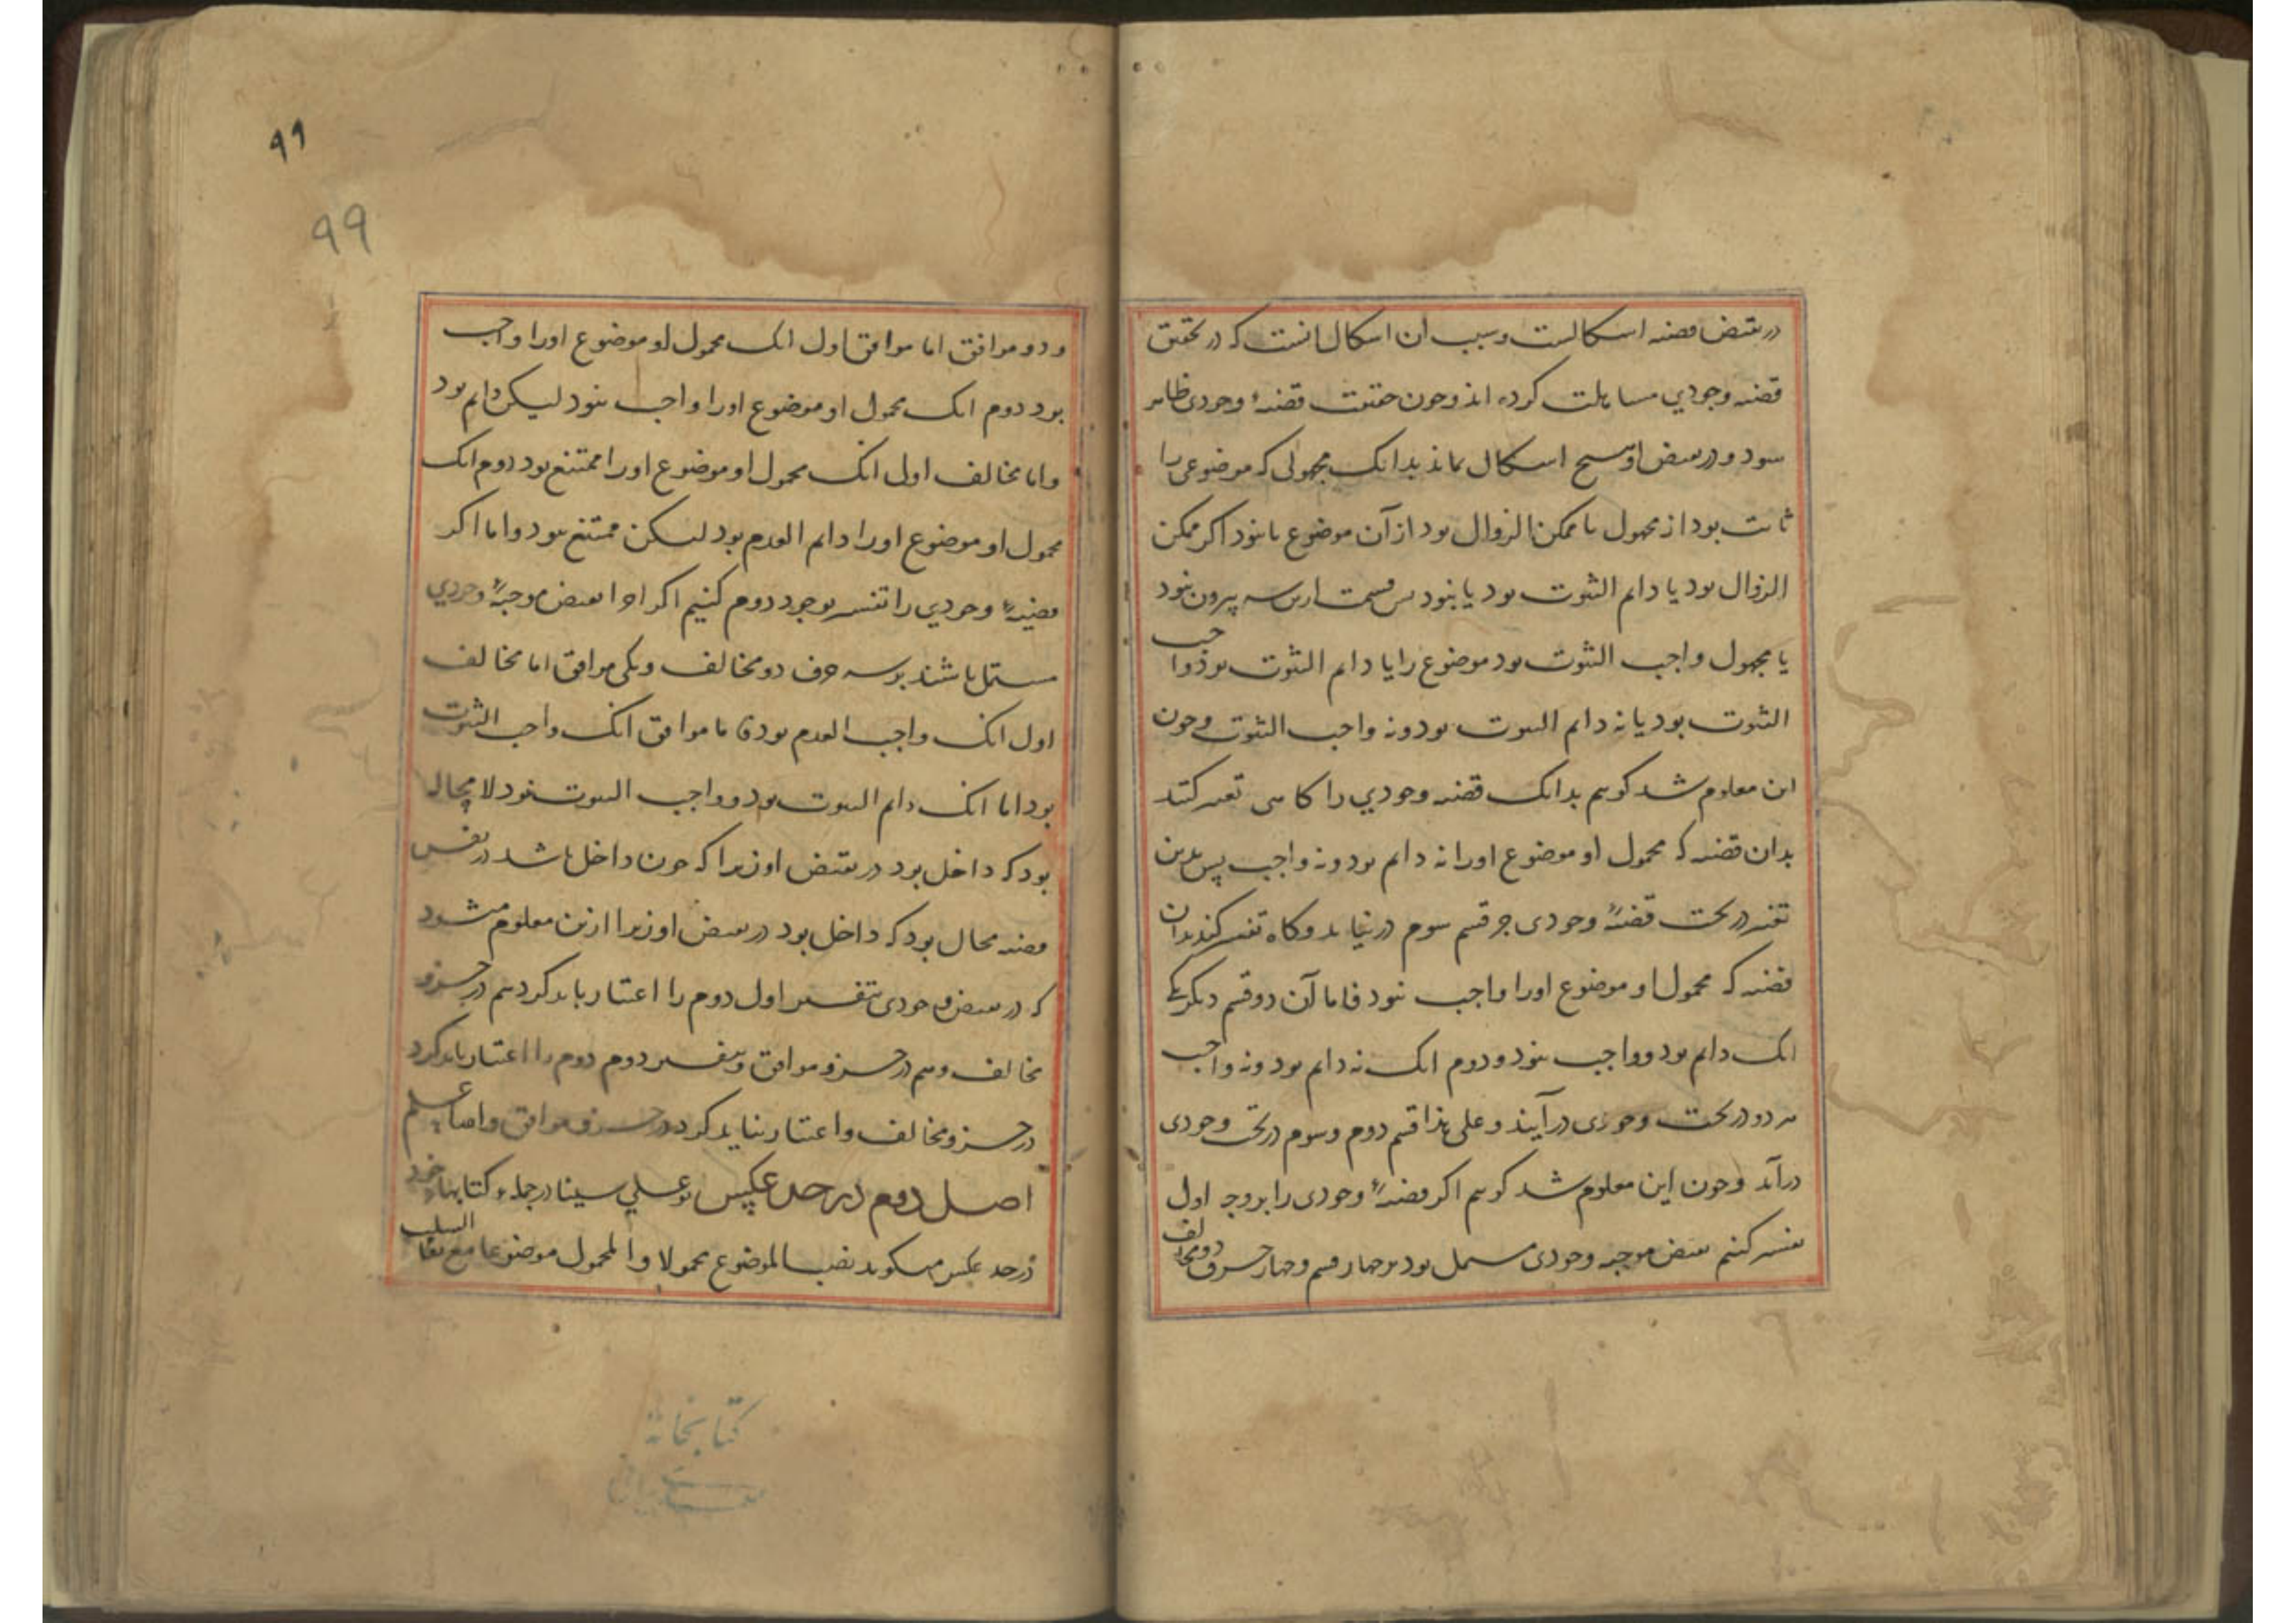 در نقیض قضیه اشکالست و سبب آن اشکال انست که در تحقیق
قضیه وجودي مساهلت کرده اند و چون حقیقت قضیهٔ وجودی ظاهر
شود در نقیض او هیچ اشکال نماند بدانک محمولی که موضوعی را
ثابت بود از محمول یا ممکن الزوال بود از آن موضوع یا نبود اگر ممکن
الزوال بود یا دایم الثبوت بود یا نبود پس قسمت ازین سه بیرون نبود
یا محمول واجب الثبوت بود موضوع را یا دایم الثبوت بود و واجب
الثبوت بود یا نه دایم الثبوت بود و نه واجب الثبوت و چون
این معلوم شد گوییم بدانک قضیه وجودي را گاهی تفسیر کنند
بدان قضیه که محمول او موضوع اورا نه دایم بود و نه واجب پس بدین
تفسیر در تحت قضیهٔ وجودی جز قسم سوم در نیاید و گاه تفسیر کنند بدان
قضیه که محمول او موضوع اورا واجب نبود فاما آن دو قسم دیگر یکی
انک دایم بود و واجب نبود و دوم انک نه دایم بود و نه واجب
هر دو در تحت وجودی درآیند و علی هذا قسم دوم و سوم در تحت وجودی
درآید و چون این معلوم شد گوییم اگر قضیهٔ وجودی را بر وجه اول
تفسیر کنیم نقیض موجبه وجودی مشتمل بود بر چهار قسم و چهار حرف دو مخالف
۹۹
۹۹
و دو موافق اما موافق اول انک محمول او موضوع اورا واجب
بود دوم انک محمول او موضوع اورا واجب نبود لیکن دایم بود
واما مخالف اول انک محمول او موضوع اورا ممتنع بود دوم انک
محمول او موضوع اورا دایم العدم بود لیکن ممتنع نبود و اما اگر
قضیهٔ وجودي را تفسیر بوجه دوم کنیم اگر اجزا نقیض موجبهٔ وجودي
مشتمل باشد بر سه حرف دو مخالف و یکی موافق اما مخالف
اول انک واجب العدم بود فاما موافق انک واجب الثبوت
بود اما انک دایم الثبوت بود و واجب الثبوت نبود لا محاله
بود که داخل بود در نقیض او زیرا که چون داخل باشد در نفس
قضیه محال بود که داخل بود در نقیض او زیرا ازین معلوم میشود
که در نقیض وجودی بتفسیر اول دوم را اعتبار باید کرد هم در جزو
مخالف و هم در جزو موافق و بتفسیر دوم دوم را اعتبار باید کرد
در جزو مخالف و اعتبار نباید کرد در جزو موافق والله اعلم
اصل دوم در حد عکس بوعلي سینا در جمله کتابهاء خود
در حد عکس میگوید نصب الموضوع محمولا والمحمول موضوعا مع بقا السلب
کتابخانه